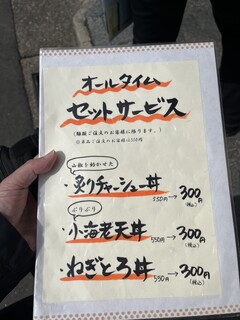 オールタイム
セットサービス
(麺類ご注文のお客様に限ります。)
※単品ご注文のお客様は550円
山椒を効かせた
・炙りチャーシュー丼
550円→300円
(税込)
ぷりぷり
・小海老天丼
550円→300円
(税込)
・ねぎとろ丼
550円→300円
(税込)